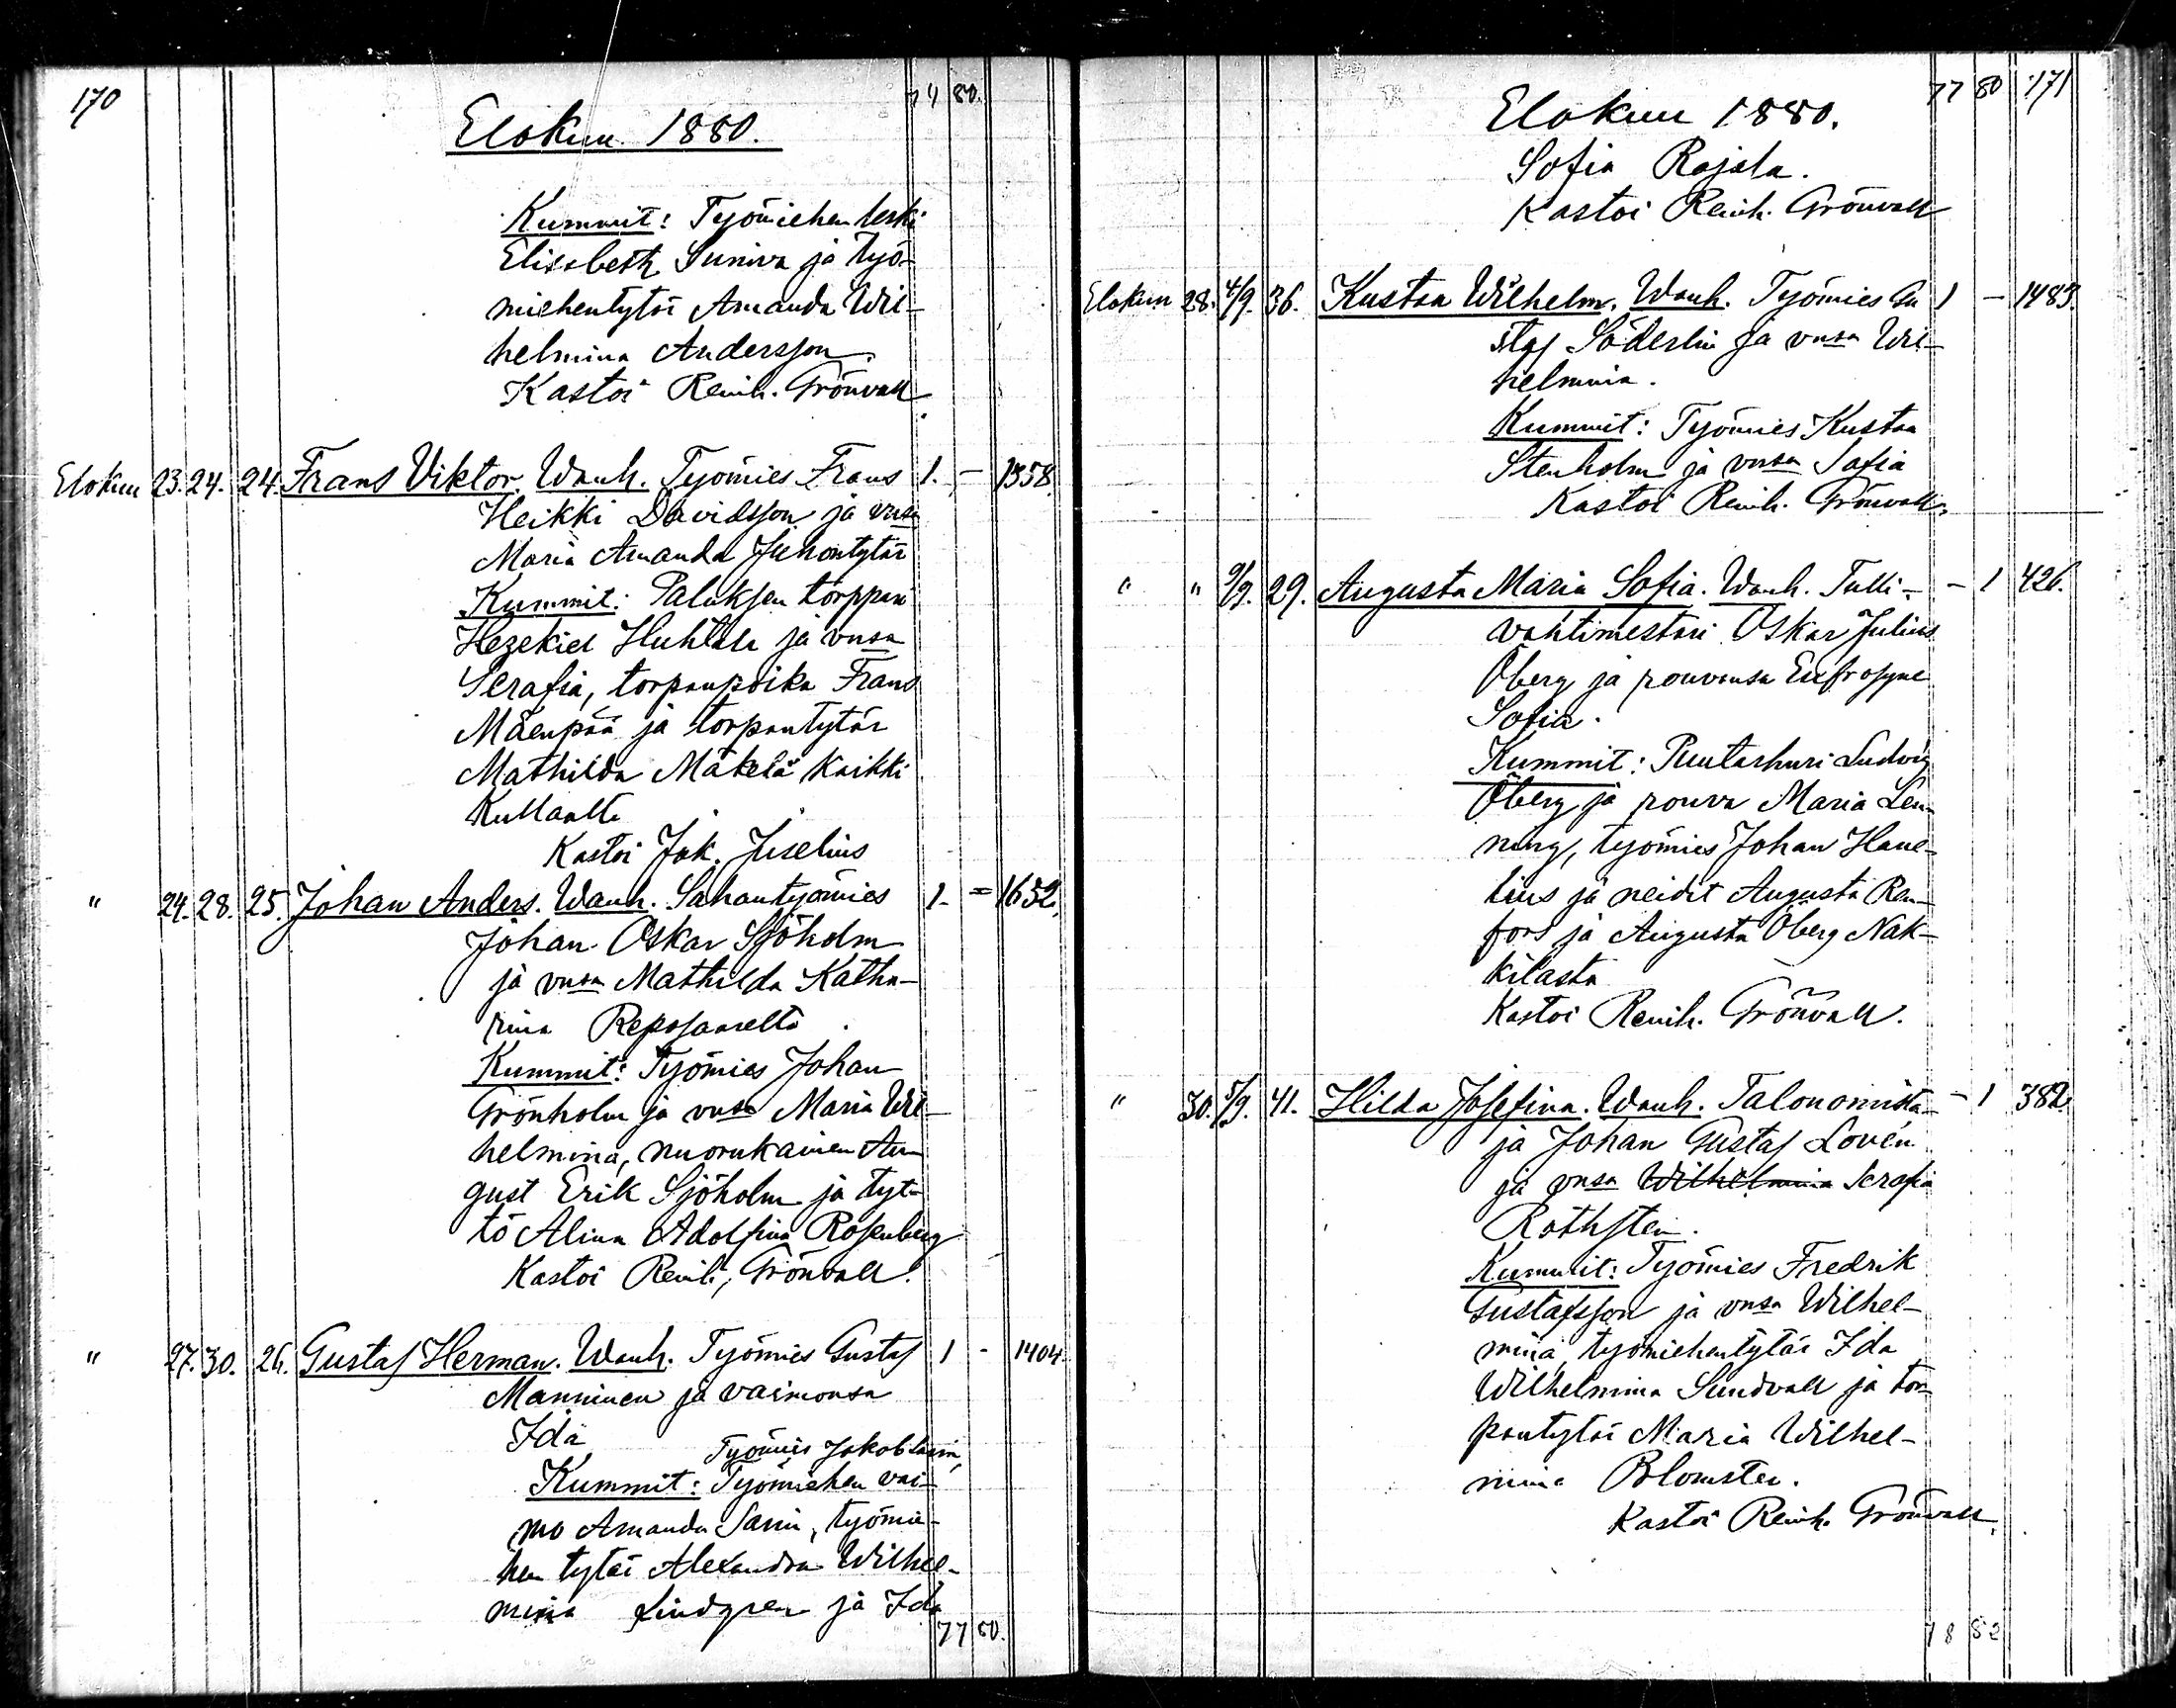 170 74 80.
Elokuu 1880.
Kummit: Työmiehen leski
Elisabeth Suniva ja työ-
miehentytär Amanda Wil-
helmina Andersson.
Kastoi Reinh. Grönvall
Elokuu 23. 24. 24. Frans Viktor. Wanh. Työmies Frans 1. - 1358.
Heikki Davidsson ja vnsa
Maria Amanda Juhontytär
Kummit: Paluksen torppari
Hezekiel Huhtala ja vnsa
Serafia, torpanpoika Frans
Mäenpää ja torpantytär
Mathilda Mäkelä kaikki
Kullaalta
Kastoi Jak. Juselius
" 24. 28. 25. Johan Anders. Wanh. Sahantyömies 1. = 1652.
Johan Oskar Sjöholm
ja vnsa Mathilda Katha-
rina Reposaarelta.
Kummit: Työmies Johan
Grönholm ja vnsa Maria Wil-
helmina, nuorukainen Au-
gust Erik Sjöholm ja tyt-
tö Alina Adolfina Rosenberg
Kastoi Reinh. Grönvall.
" 27. 30. 26. Gustaf Herman. Wanh. Työmies Gustaf 1 - 1404.
Manninen ja vaimonsa
Ida
Työmies Jakob
Kummit: Työmiehen vai-
mo Amanda , työmie-
hen tytär Alexandra Wilhel-
mina Lindgren ja Ida
77 80.
77 80 171
Elokuu 1880.
Sofia Rajala.
Kastoi Reinh. Grönvall
Elokuu 28. 4/9. 36. Kustaa Wilhelm. Wanh. Työmies Gu 1 - 1483.
staf Söderlin ja vnsa Wil-
helmina.
Kummit: Työmies Kustaa
Stenholm ja vnsa Sofia
Kastoi Reinh. Grönvall.
" " 9/9. 29. Augusta Maria Sofia. Wanh. Tulli- - 1 426.
vahtimestari Oskar Julius
Öberg ja rouvansa Eufrosyne
Sofia.
Kummit: Puutarhuri Ludvig
Öberg ja rouva Maria Len-
ning, työmies Johan Hane-
lius ja neidit Augusta Ren-
fors ja Augusta Öberg Nak-
kilasta
Kastoi Reinh. Grönvall.
" 30. 5/9. 41. Hilda Josefina. Wanh. Talonomista- - 1 382.
ja Johan Gustaf Lovén
ja vnsa Wilhelmina Serafia
Rothsten.
Kummit: Työmies Fredrik
Gustafsson ja vnsa Wilhel-
mina, työmiehentytär Ida
Wilhelmina Sundvall ja tor-
pantytär Maria Wilhel-
mina Blomster.
Kastoi Reinh. Grönvall.
78 82